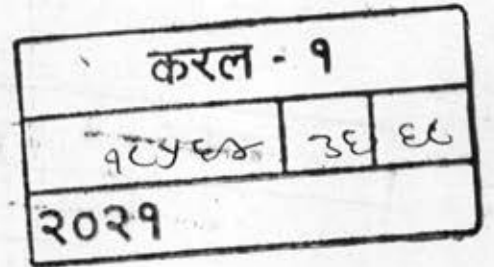 करल - १
१८५६४ ३६ ६८
२०२१